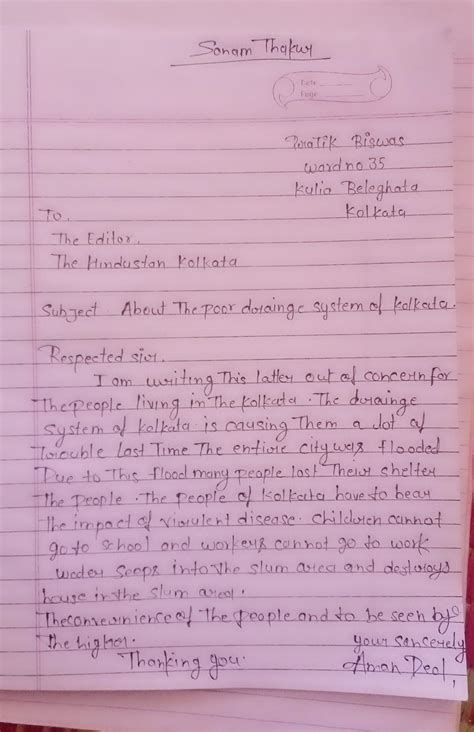 Sonam Thakur
Date
Page
Pratik Biswas
ward no 35
Kulia Beleghata
Kolkata
To,
The Editor,
The Hindustan Kolkata
Subject. About The poor drainge system of kolkata.
Respected sir,
I am writing This latter out of concern for
The people living in The kolkata. The drainge
system of kolkata is causing Them a lot of
Trouble Last Time The entire city was flooded
Due to This flood many people lost Their shelter
The people. The people of kolkata have to bear
The impact of virulent disease. children cannot
go to school and workers cannot go to work
water seeps into the slum area and destroys
house in the slum area.
The convenience of The people and to be seen by
The higher.
your sancerely
Thanking you.
Aman Deol,